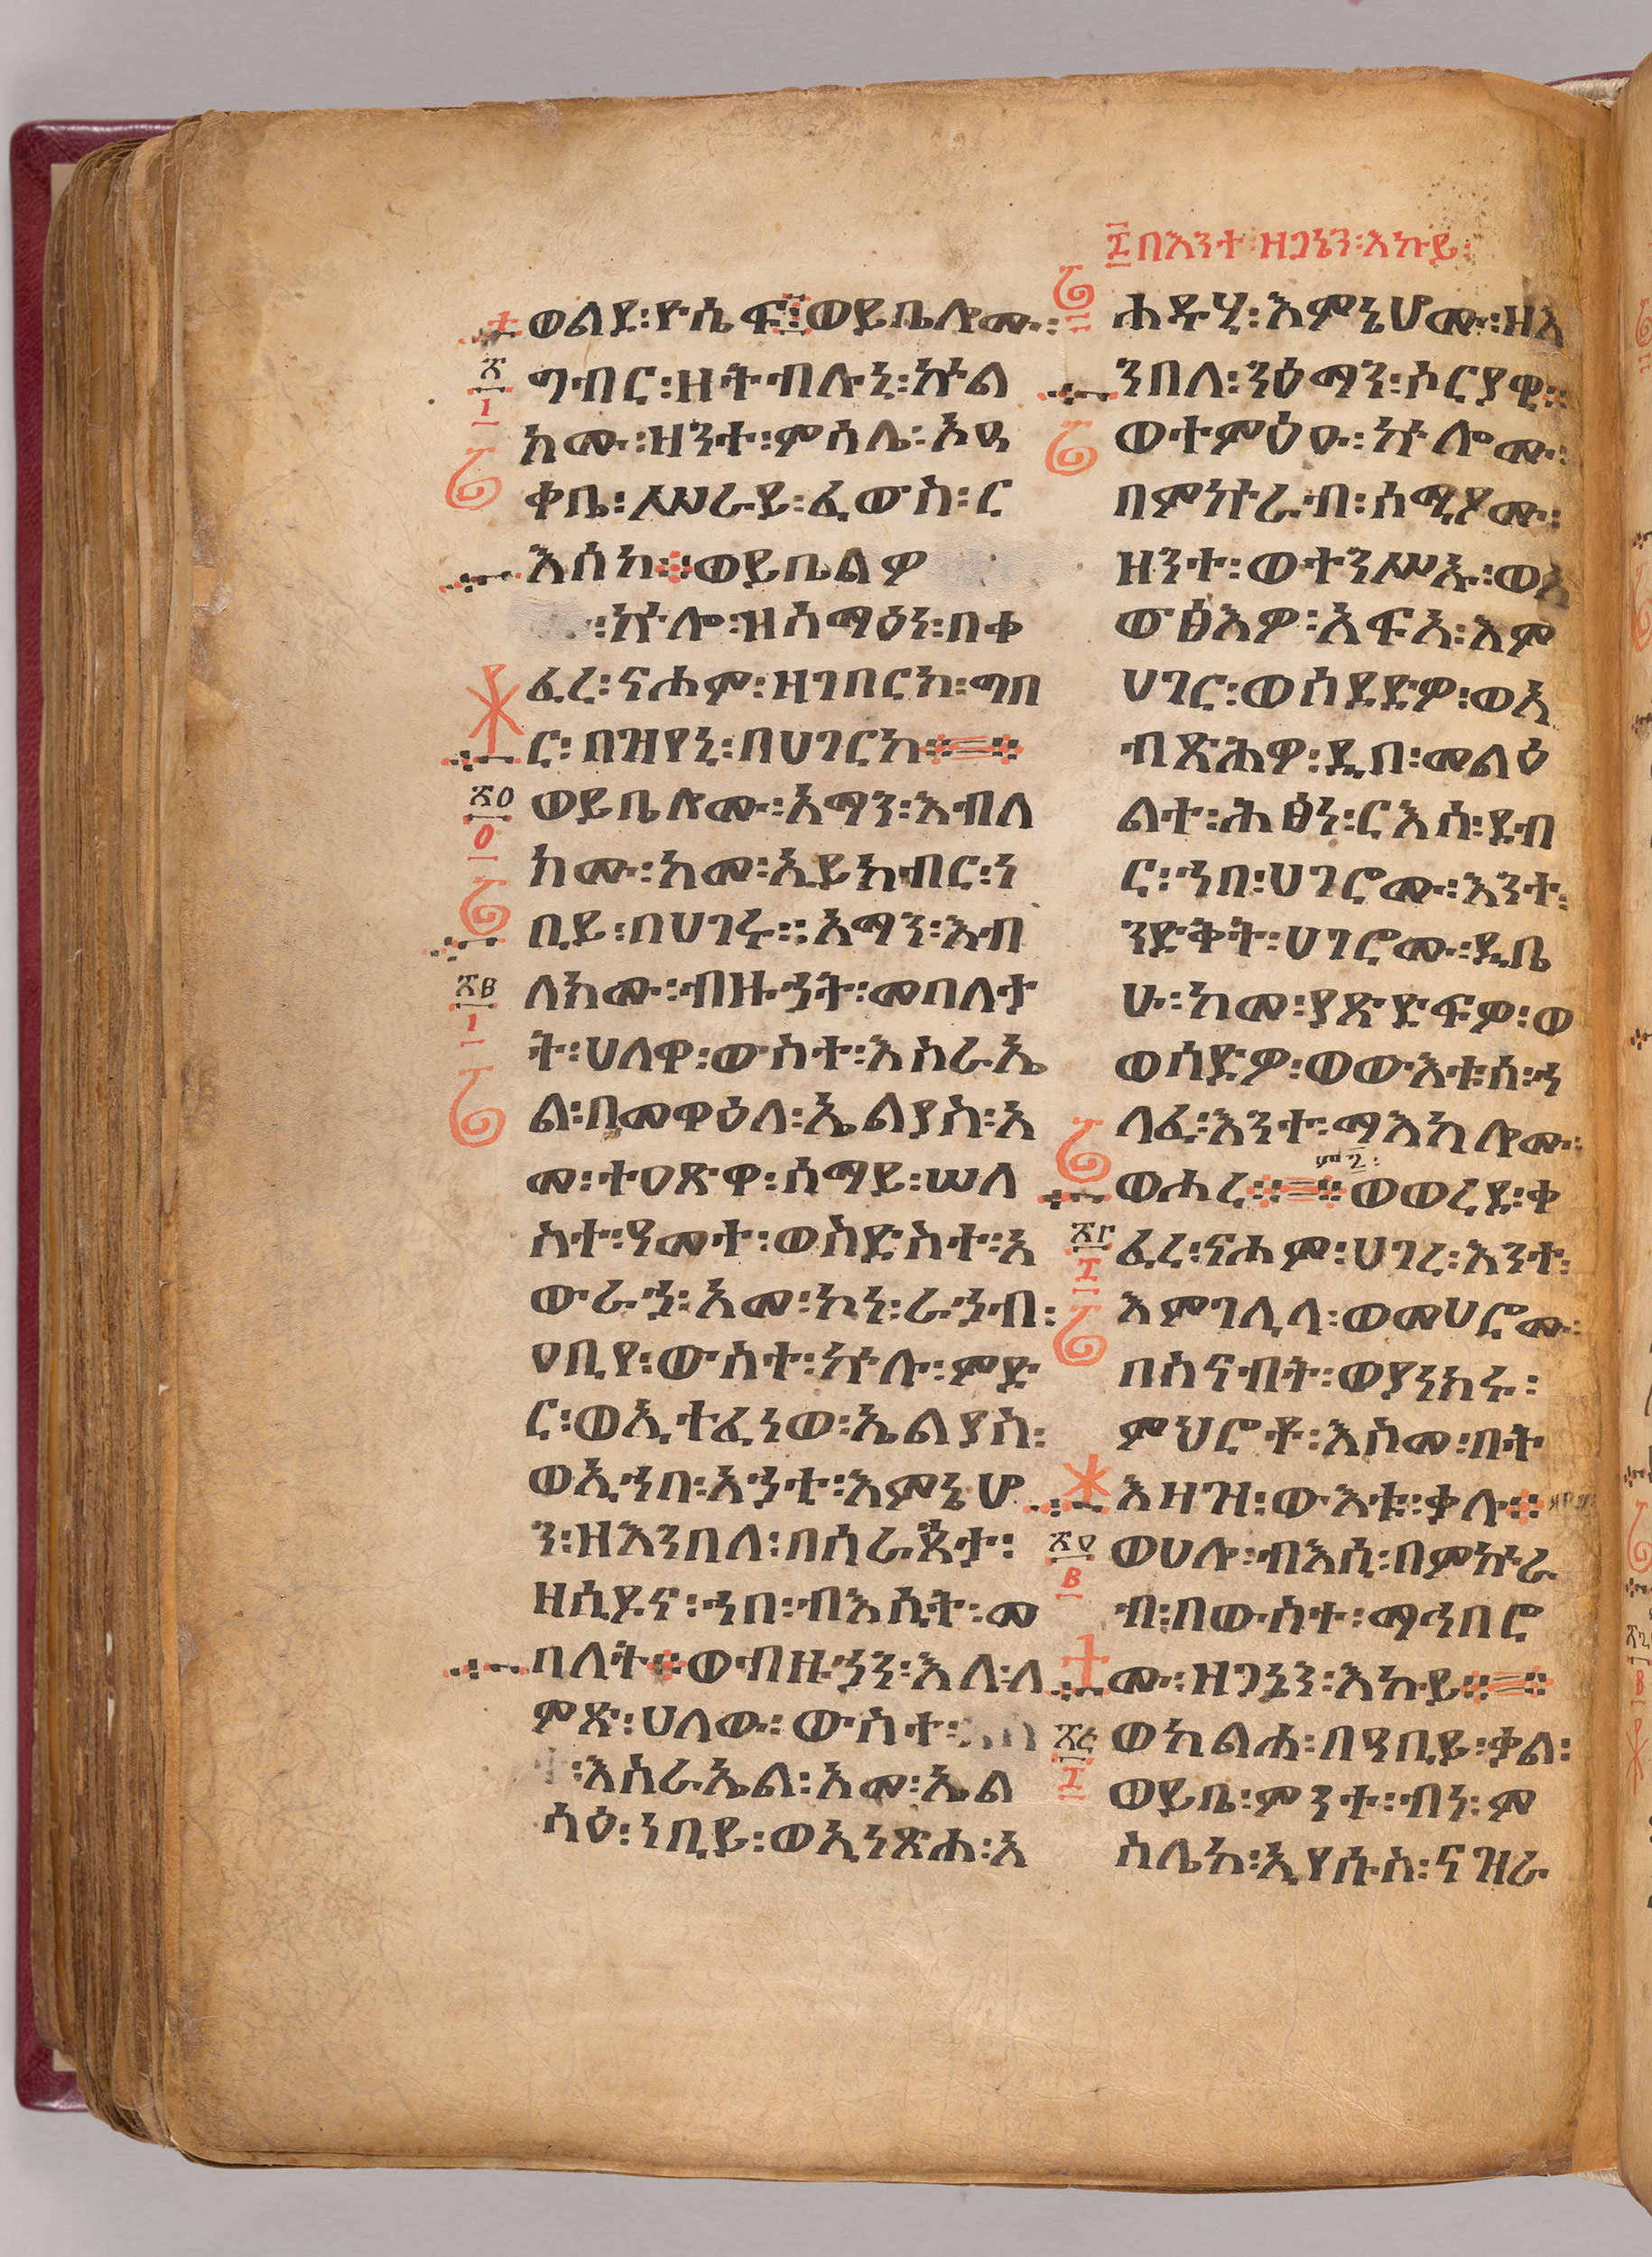 ፲በእንተ፡ዘጋኔን፡እኩይ፡
ወልደ፡ዮሴፍ፨ወይቤሎሙ፡
ግብር፡ዘትብሉኒ፡ኵል
ክሙ፡ዘንተ፡ምሳሌ፡ኦዓ
ቃቤ፡ሥራይ፡ፈውስ፡ር
እሰከ፨ወይቤልዎ
፡ኵሎ፡ዝሰማዕነ፡በቀ
ፈረ፡ናሖም፡ዘገበርከ፡ግበ
ር፡በዝየኒ፡በሀገርከ፨=፨
፳፬
፬
ወይቤሎሙ፡አማን፡እብለ
ክሙ፡ከመ፡ኢይከብር፡ነ
ቢይ፡በሀገሩ፡፡አማን፡እብ
ለክሙ፡ብዙኃት፡መበለታ
ት፡ሀለዋ፡ውስተ፡እስራኤ
ል፡በመዋዕለ፡ኤልያስ፡አ
መ፡ተዐጽዋ፡ሰማይ፡ሠለ
ስተ፡ዓመተ፡ወስድስተ፡አ
ውራኀ፡አመ፡ኮነ፡ራኃብ፡
ዐቢየ፡ውስተ፡ኵሉ፡ምድ
ር፡ወኢተፈነወ፡ኤልያስ፡
ወኢኀበ፡አኃቲ፡እምኔሆ
ን፡ዘእንበለ፡በሰራጵታ፡
ዘሲዶና፡ኀበ፡ብእሲት፡መ
በለት፨ወብዙኃን፡እለ፡ለ
ምጽ፡ሀለው፡ውስተ፡
፡እስራኤል፡አመ፡ኤል
ሳዕ፡ነቢይ፡ወኢነጽሐ፡አ
ሐዱሂ፡እምኔሆሙ፡ዘእ
ንበለ፡ንዕማን፡ሶርያዊ፡፡
ወተምዕዑ፡ኵሎሙ፡
በምኵራብ፡ሰሚዖሙ፡
ዘንተ፡ወተንሥኡ፡ወአ
ውፅእዎ፡አፍአ፡እም
ሀገር፡ወሰደድዎ፡ወአ
ብጽሕዎ፡ዲበ፡መልዕ
ልተ፡ሕፅነ፡ርእሰ፡ደብ
ር፡ኀበ፡ሀገሮሙ፡እንተ፡
ንድቅት፡ሀገሮሙ፡ዲቤ
ሁ፡ከመ፡ያጽድፍዎ፡ወ
ወሰድዎ፡ወውእቱሰ፡ኀ
ለፈ፡እንተ፡ማእከሎሙ፡
ወሐረ፨=፨ወወረደ፡ቀ
ፈረ፡ናሖም፡ሀገረ፡እንተ፡
እምገሊላ፡ወመሀሮሙ፡
በሰናብት፡ወያነክሩ፡
ምህሮቶ፡እስመ፡በት
እዛዝ፡ውእቱ፡ቃሉ፨
ወሀሎ፡ብእሲ፡በምኵራ
ብ፡በውስተ፡ማኅበሮ
ሙ፡ዘጋኔን፡እኩይ፨=፨
ወከልሐ፡በዓቢይ፡ቃል፡
ወይቤ፡ምንተ፡ብነ፡ም
ስሌከ፡ኢየሱስ፡ናዝራ